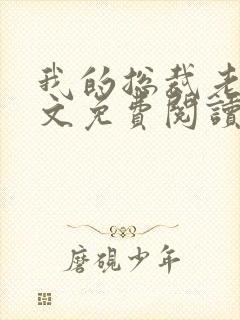 我的總裁老
文免費閱讀
磨硯少年